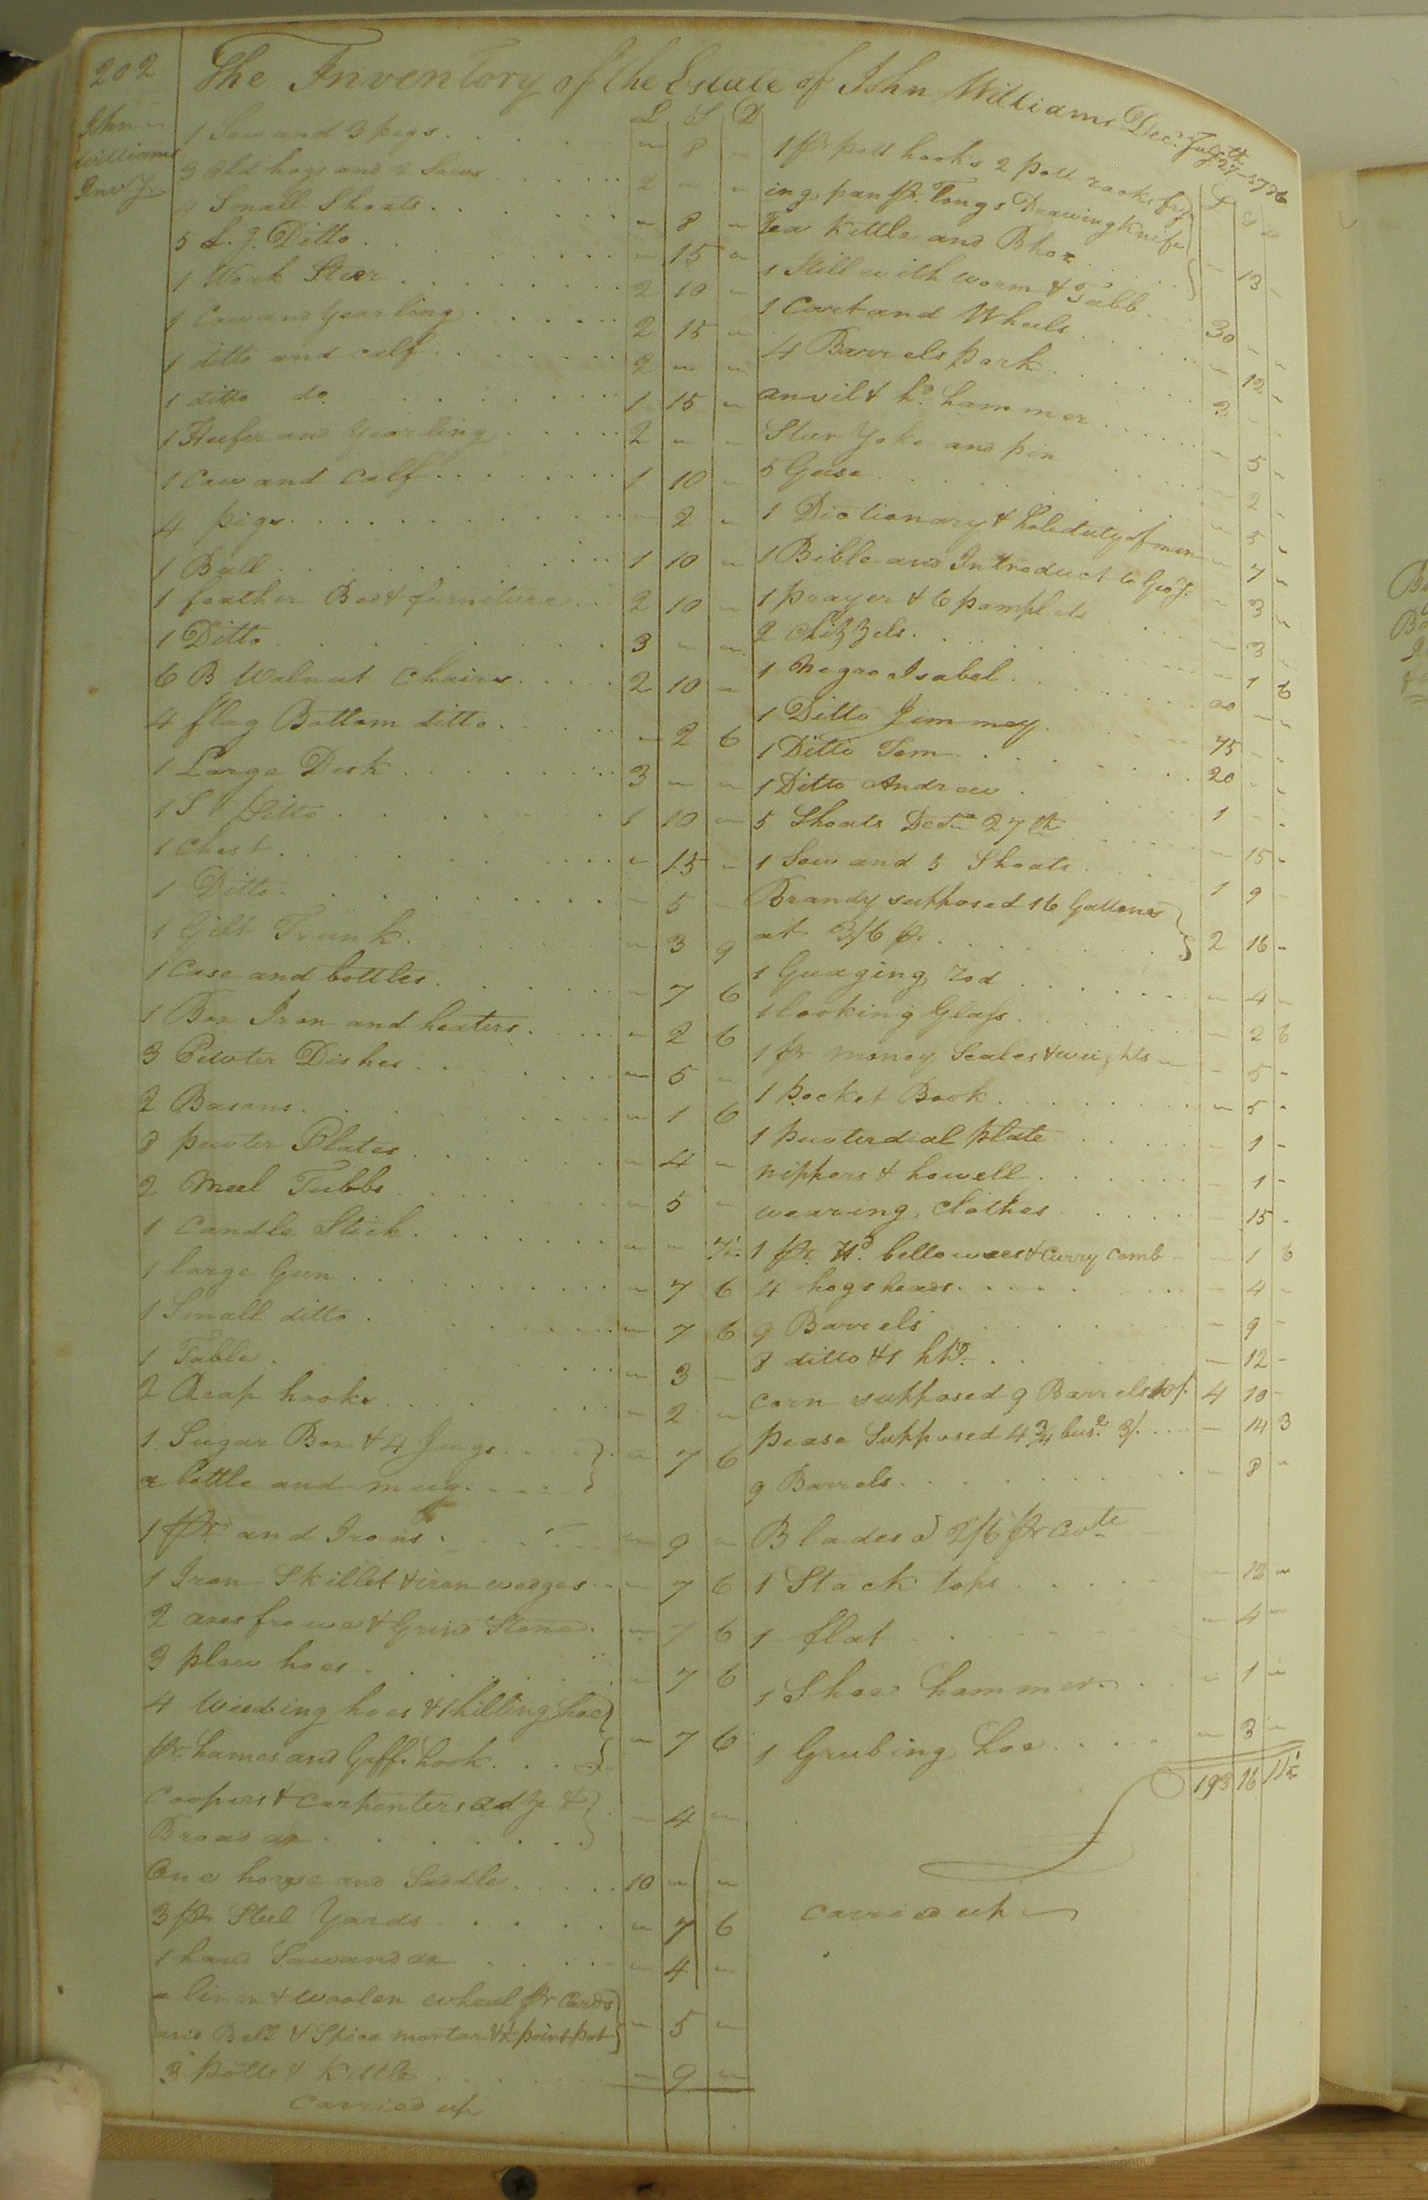 202
The Inventory of the Estate of John Williams Decd. July 27th 1786
John
Williams
Invy.
£ S D
1 Sow and 3 pigs - 8 -
3 Old hogs and 2 Sows 2 - -
4 Small Shoats - 8 -
5 L. g. Ditto - 15 -
1 Work Steer 2 10 -
1 Cow and Yearling 2 15 -
1 ditto and calf 2 - -
1 ditto do. 1 15 -
1 Heefer and Yearling 2 - -
1 Cow and Calf 1 10 -
4 pigs - 2 -
1 Bull 1 10 -
1 feather Bed & furniture 2 10 -
1 Ditto 3 - -
6 B Walnut Chairs 2 10 -
4 flag Bottom ditto - 2 6
1 Large Desk 3 - -
1 S Ditto 1 10 -
1 Chest - 15 -
1 Ditto - 5 -
1 Gilt Trunk - 3 9
1 Case and bottles - 7 6
1 Box Iron and heaters - 2 6
3 Pewter Dishes - 5 -
2 Basons - 1 6
8 pewter Plates - 4 -
2 Meel Tubbs - 5 -
1 Candle Stick - - 7½
1 large Gun - 7 6
1 Small ditto - 7 6
1 Table - 3 -
2 Reap hooks - 2 -
1 Sugar Box & 4 Jugs
a bottle and mug - 7 6
1 pr and Irons - 9 -
1 Iron Skillet & iron wedges - 7 6
2 axes frowe & Grind Stone - 7 6
3 plow hoes - 7 6
4 Weeding hoes & 1 hilling hoe
pr. hames and Gaff hook - 7 6
Coopers & Carpenters adze &
Broad ax - 4 -
One horse and Saddle 10 - -
3 pr Steel Yards - 7 6
1 hand Saw and ax - 4 -
a linen & woolen wheel pr Cards
and Bell & Spice mortar & ½ point pot - 5 -
3 potts & Kittle - 9 -
Carried up
£ S D
1 pr pott hooks 2 pott racks fry
ing pan pr. Tongs Drawing Knife
Tea Kittle and Bhox - 13 -
1 Still with worm & Tubb 30 - -
1 Cart and Wheels - 12 -
4 Barrels pork 3 - -
anvil & hd. hammer - 5 -
Steer Yoke and pin - 2 -
5 Geese - 5 -
1 Dictionary & holeduty of man - 7 -
1 Bible and Introduct to Geogy. - 3 -
1 prayer & 6 pamplets - 3 -
2 Chizzels - 1 6
1 Negro Isabel 20 - -
1 Ditto Jimmey 75 - -
1 Ditto Tom 20 - -
1 Ditto Andrew 1 - -
5 Shoats Decm 27th - 15 -
1 Sow and 5 Shoats 1 9 -
Brandy supposed 16 Gallones
at 3/6 pr 2 16 -
1 Guaging rod - 4 -
1 looking Glass - 2 6
1 pr money Scales & weights - 5 -
1 pocket Book - 5 -
1 pewter dial plate - 1 -
nippers & howell - 1 -
wearing Clothes - 15 -
1 pr. Hd. bellowses & Curry Comb - 1 6
4 hogsheads - 4 -
9 Barrels - 9 -
8 ditto & 1 hhd - 12 -
Corn supposed 9 Barrels 10/. 4 10 -
pease Supposed 4¾ bus. 3/. - 14 3
9 Barrels - 8 -
Blades @ 2/6 pr Cwt
1 Stack tops - 12 -
1 flat - 4 -
1 Shoe hammer - 1 -
1 Grubing hoe - 3 -
193 16 11½
Carried up